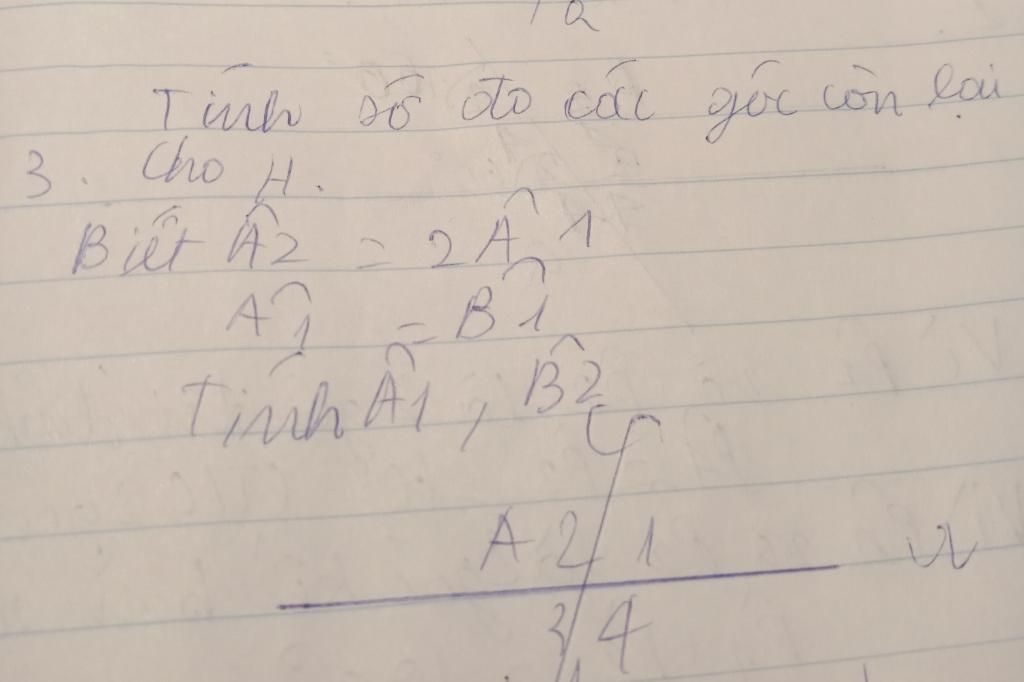 Tính số đo các góc còn lại
3. Cho H.
Biết Â2 = 2Â1
Â1 = B̂1
Tính Â1, B̂2
A 2 1
3 4